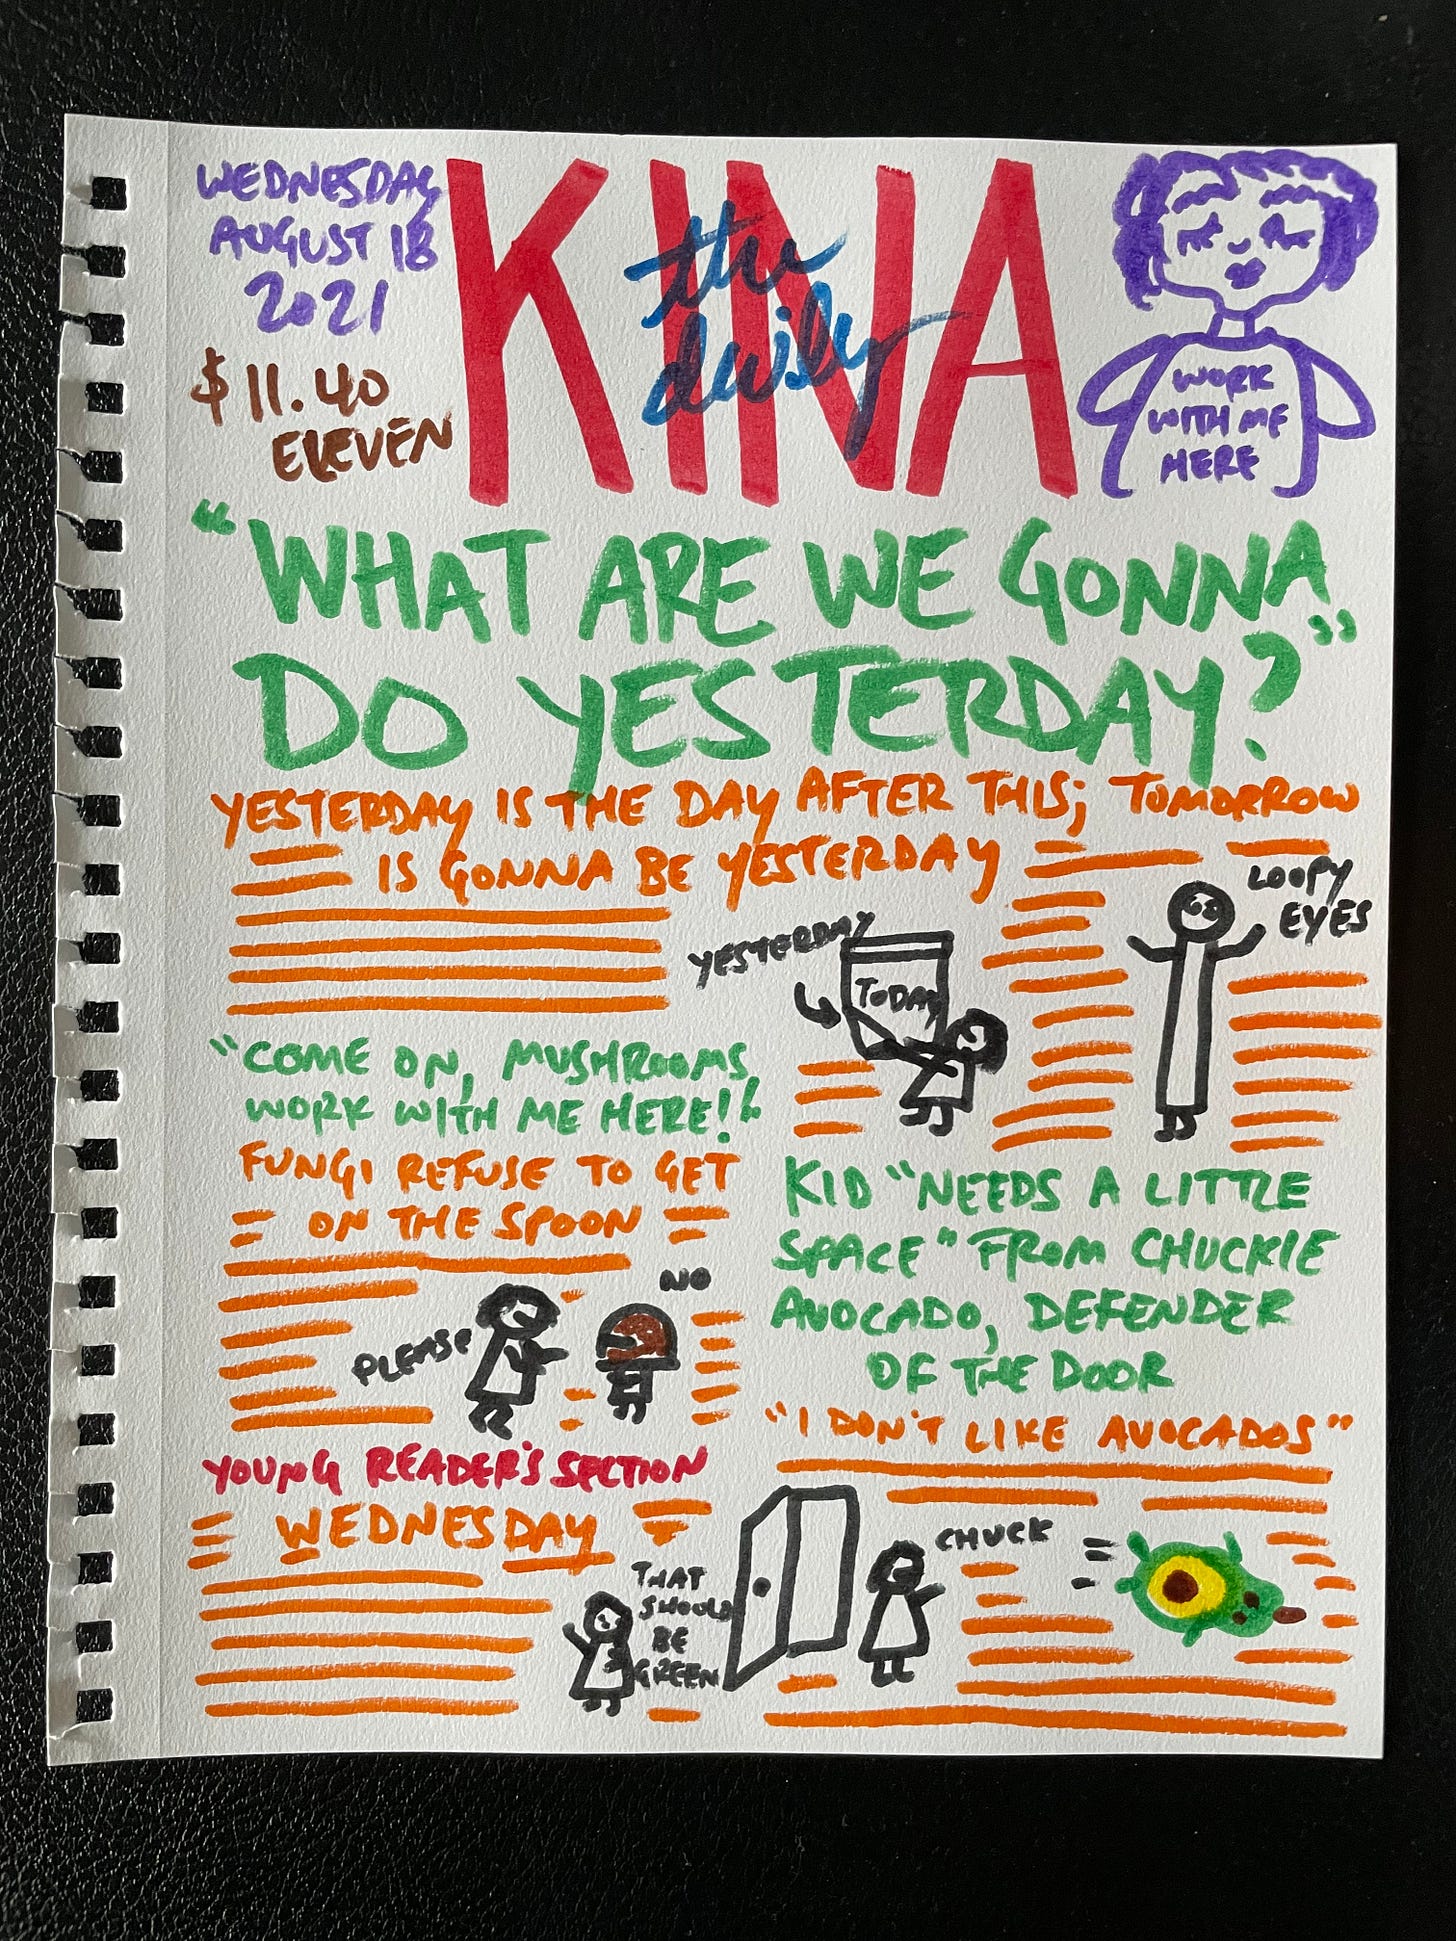 WEDNESDAY
AUGUST 18
2021
$11.40
ELEVEN
KINA
the
daily
WORK
WITH ME
HERE
"WHAT ARE WE GONNA
DO YESTERDAY?"
YESTERDAY IS THE DAY AFTER THIS; TOMORROW
IS GONNA BE YESTERDAY
YESTERDAY
TODAY
LOOPY
EYES
"COME ON, MUSHROOMS,
WORK WITH ME HERE!"
FUNGI REFUSE TO GET
ON THE SPOON
PLEASE
NO
KID "NEEDS A LITTLE
SPACE" FROM CHUCKIE
AVOCADO, DEFENDER
OF THE DOOR
"I DON'T LIKE AVOCADOS"
CHUCK
YOUNG READER'S SECTION
WEDNESDAY
THAT
SHOULD
BE
GREEN